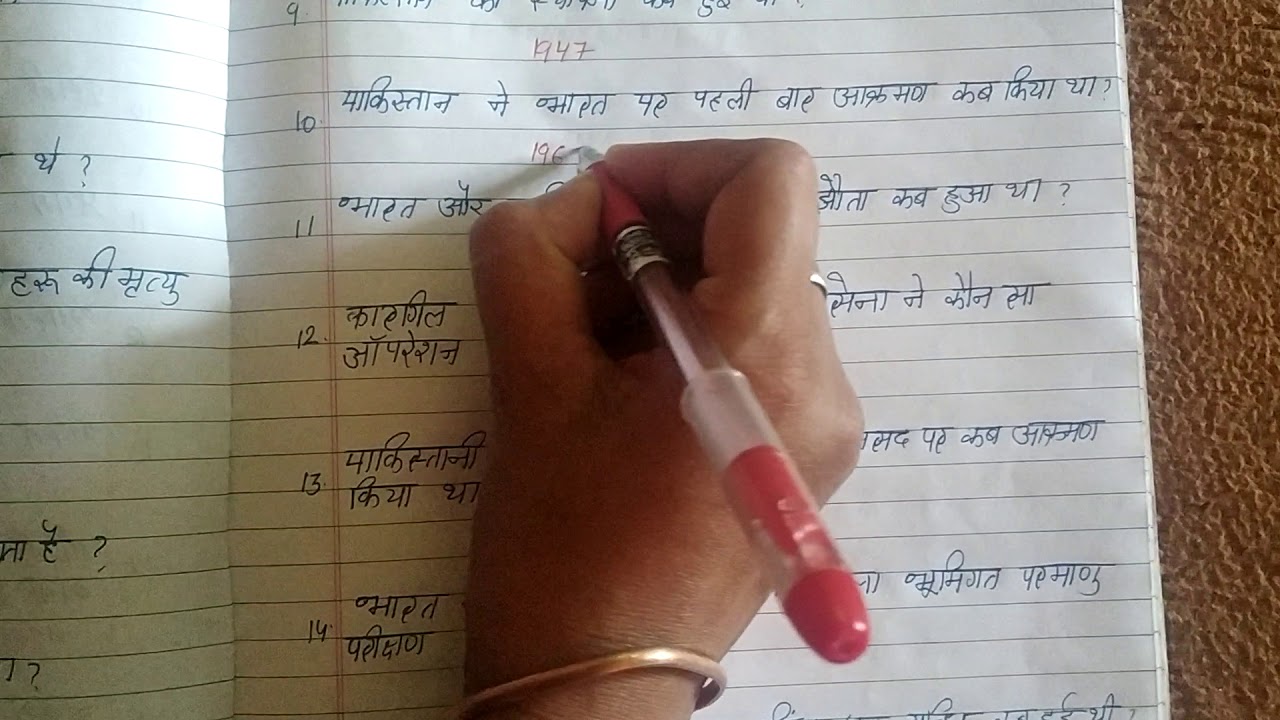 थे ?
हरू की मृत्यु
है ?
?
9.
1947
10. पाकिस्तान ने भारत पर पहली बार आक्रमण कब किया था?
196
11 भारत और औता कब हुआ था ?
12. कारगिल सेना ने कौन सा
ऑपरेशन
13. पाकिस्तानी सद पर कब आक्रमण
किया था
14. भारत भूमिगत परमाणु
परीक्षण